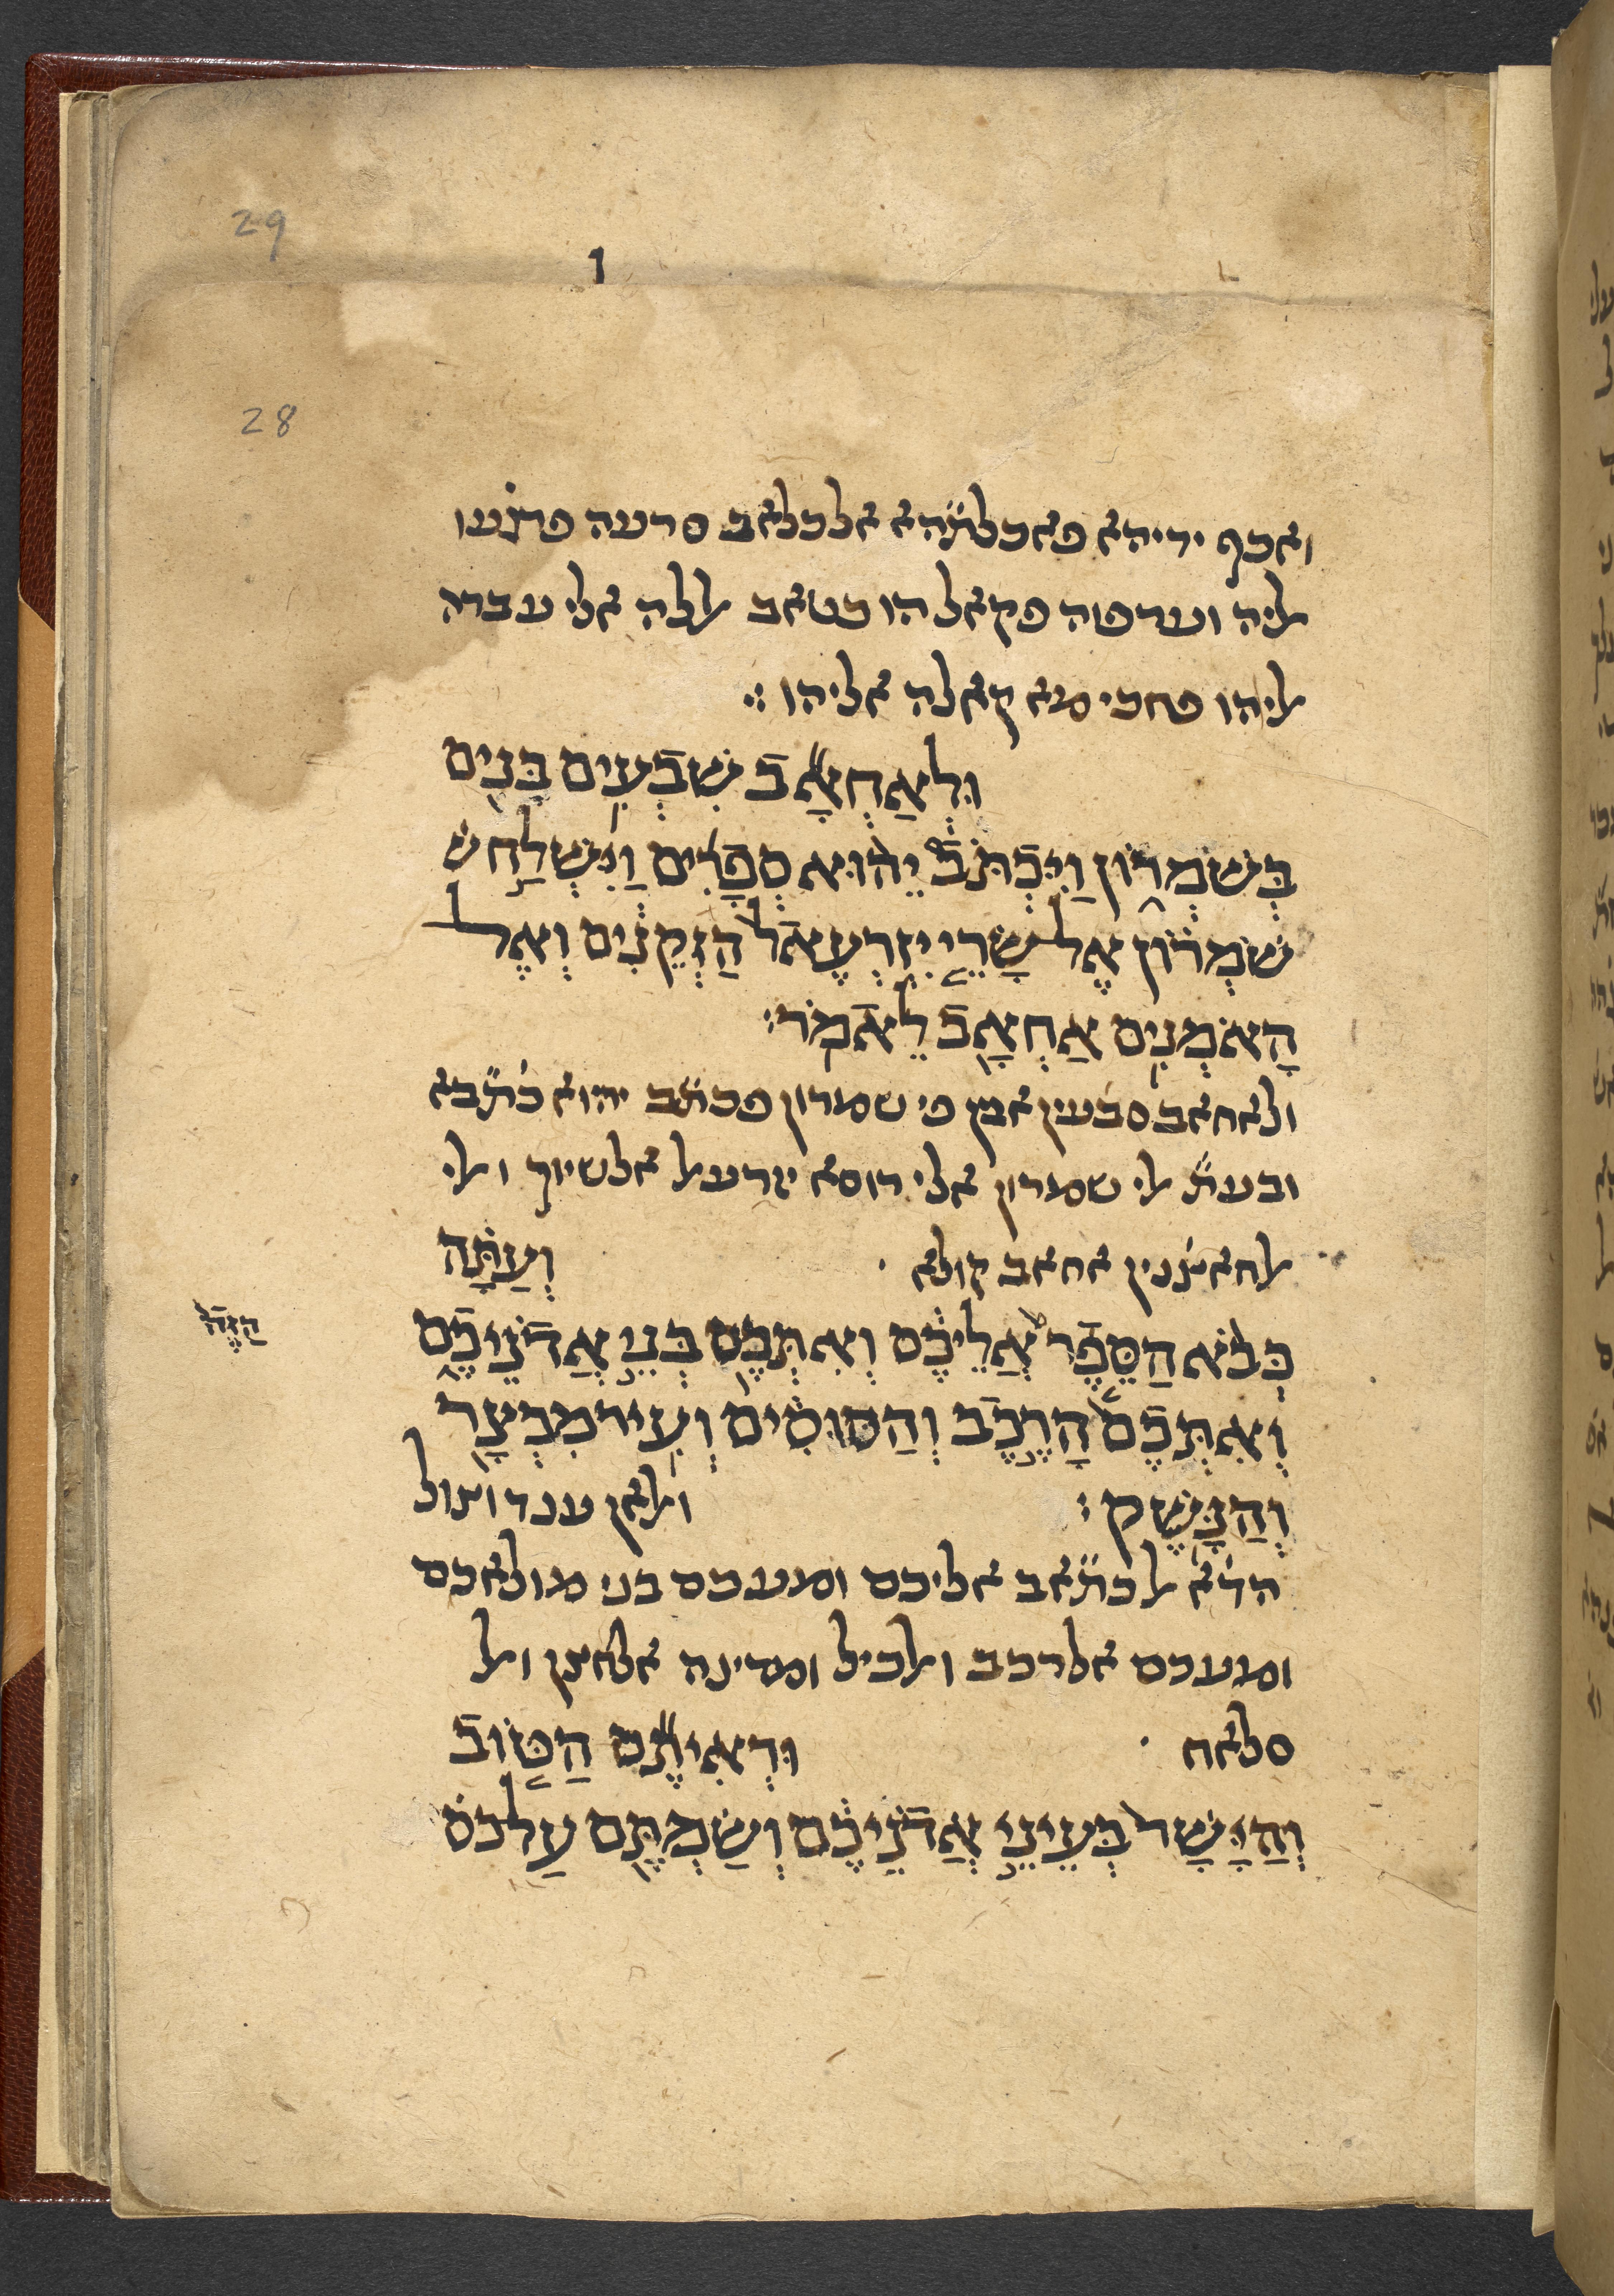 29
1
28
ואכף ידיהא פאכלתהא אלכלאב סרעה פרגעו
אליה וערפוה פקאל הו כטאב אללה אלי עבדה
אליהו פחכי מא קאלה אליהו ׃
וּלְאַחְאָב שִׁבְעִים בָּנִים
בְּשֹׁמְרוֹן וַיִּכְתֹּב יֵהוּא סְפָרִים וַיִּשְׁלַח ש
שֹׁמְרוֹן אֶל שָׂרֵי יִזְרְעֶאל הַזְּקֵנִים וְאֶל
הָאֹמְנִים אַחְאָב לֵאמֹר׃
ולאחאב סבעין אבן פי שמרון פכתב יהוא כתבא
ובעת אלי שמרון אלי רוסא יזרעאל אלשיוך ואלי
אלחאצנין אחאב קולא · וְעַתָּה
כְּבֹא הַסֵּפֶר אֲלֵיכֶם וְאִתְּכֶם בְּנֵי אֲדֹנֵיכֶם
הַזֶּה
וְאִתְּכֶם הָרֶכֶב וְהַסּוּסִים וְעִיר מִבְצָר
וְהַנָּשֶׁק׃ ואלאן ענד וצול
הדא אלכתאב אליכם ומעכם בני מולאכם
ומעכם אלרכב ואלכיל ומדינה אלחצן ואל
סלאח · וּרְאִיתֶם הַטּוֹב
וְהַיָּשָׁר בְּעֵינֵי אֲדֹנֵיכֶם וְשַׂמְתֶּם עַל כס